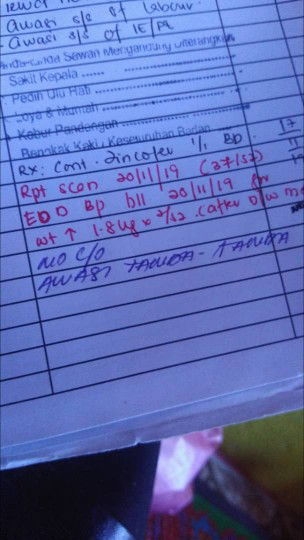 awasi s/s of labour.
- awasi s/s of IE/PE
Sewan Mengandung diterangkan
Sakit Kepala ......
Pedih Ulu Hati
Loya & Muntah
Kabur Pandangan
Bengkak Kaki / Keseluruhan Badan
Rx: Cont. Zincofer 1/1 BD. 17
Rpt scan 20/11/19 (37/52)
EDD Bp b11 20/11/19
wt ↑ 1.8kg x 2/52 . (after D/W
NO C/O
AWASI TANDA - TANDA